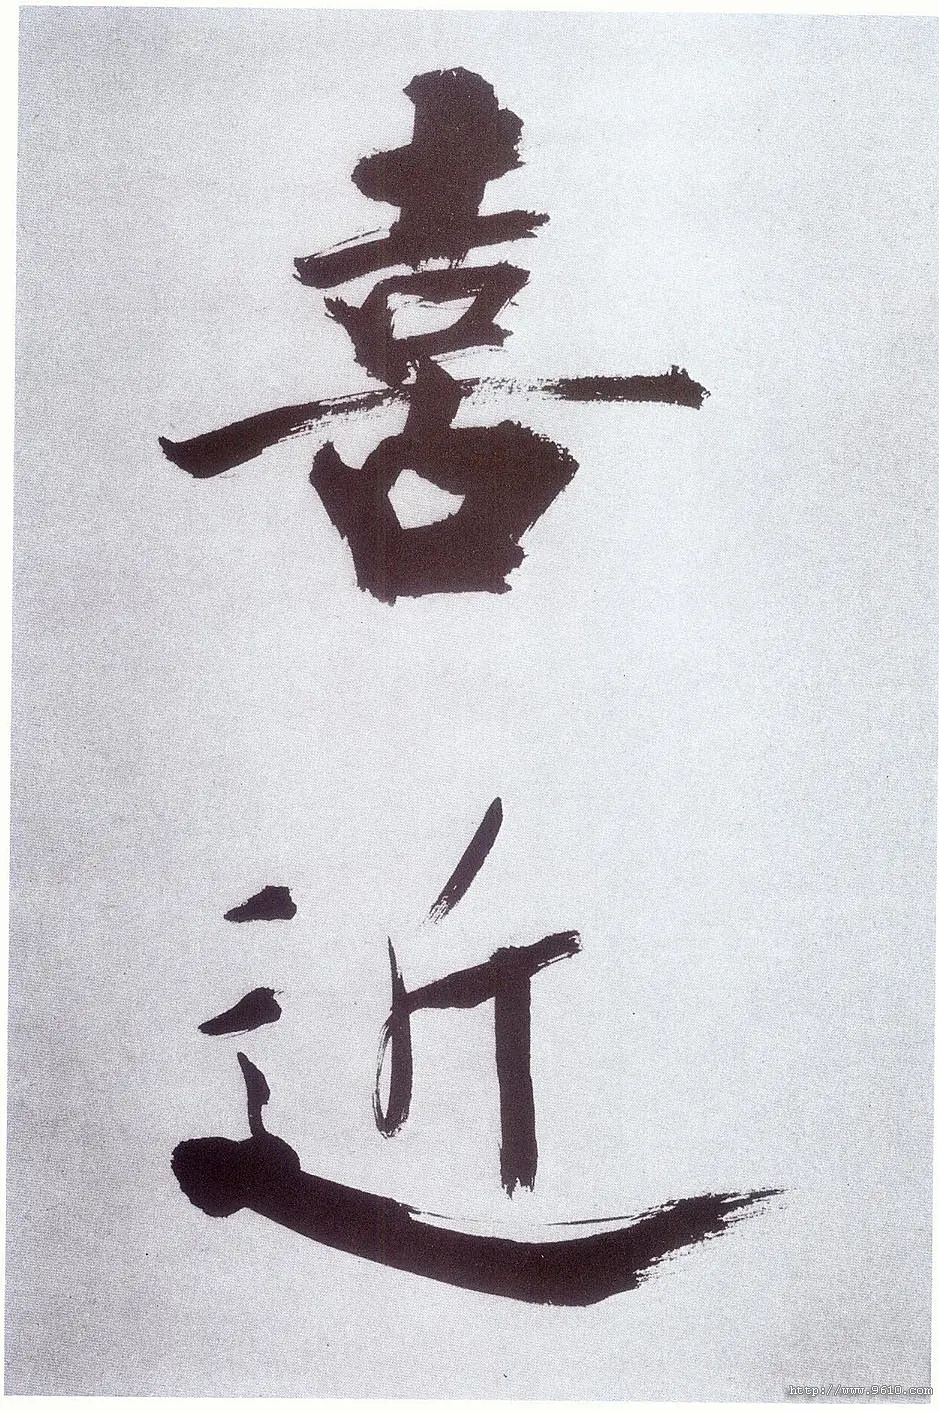 喜
近
http://www.9610.com